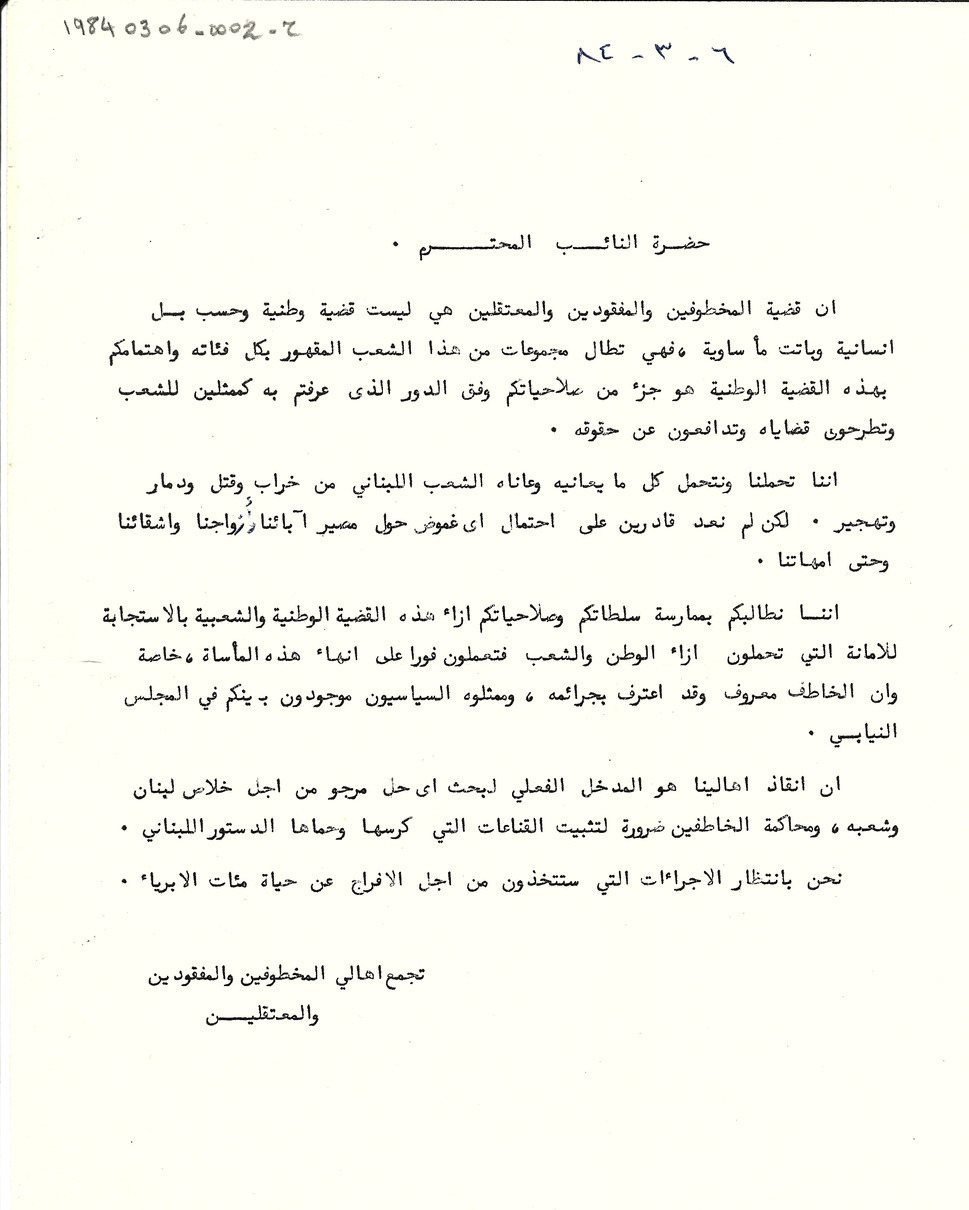 19840306-0002-ح
٨٤ - ٣ - ٦
حضـرة النائــب المحتــــرم ٠
ان قضية المخطوفين والمفقودين والمعتقلين هي ليست قضية وطنية وحسب بــل
انسانية وباتت مأساوية ،فهي تطال مجموعات من هذا الشعب المقهور بكل فئاته واهتمامكم
بهذه القضية الوطنية هو جزء من صلاحياتكم وفق الدور الذى عرفتم به كممثلين للشعب
وتطرحون قضاياه وتدافعون عن حقوقه ٠
اننا تحملنا ونتحمل كل ما يعانيه وعاناه الشعب اللبناني من خراب وقتل ودمار
وتهجير ٠ لكن لم نعد قادرين على احتمال اى غموض حول مصير آبائنا وأزواجنا واشقائنا
وحتى امهاتنا ٠
اننــا نطالبكم بممارسة سلطاتكم وصلاحياتكم ازاء هذه القضية الوطنية والشعبية بالاستجابة
للامانة التي تحملون ازاء الوطن والشعب فتعملون فورا على انهاء هذه المأساة ،خاصة
وان الخاطف معروف وقد اعترف بجرائمه ، وممثلوه السياسيون موجودون بينكم في المجلس
النيابــي ٠
ان انقاذ اهالينا هو المدخل الفعلي لبحث اى حل مرجو من اجل خلاص لبنان
وشعبه ، ومحاكمة الخاطفين ضرورة لتثبيت القناعات التي كرسها وحماها الدستور اللبناني ٠
نحن بانتظار الاجراءات التي ستتخذون من اجل الافراج عن حياة مئات الابرياء ٠
تجمع اهالي المخطوفين والمفقودين
والمعتقليــــن